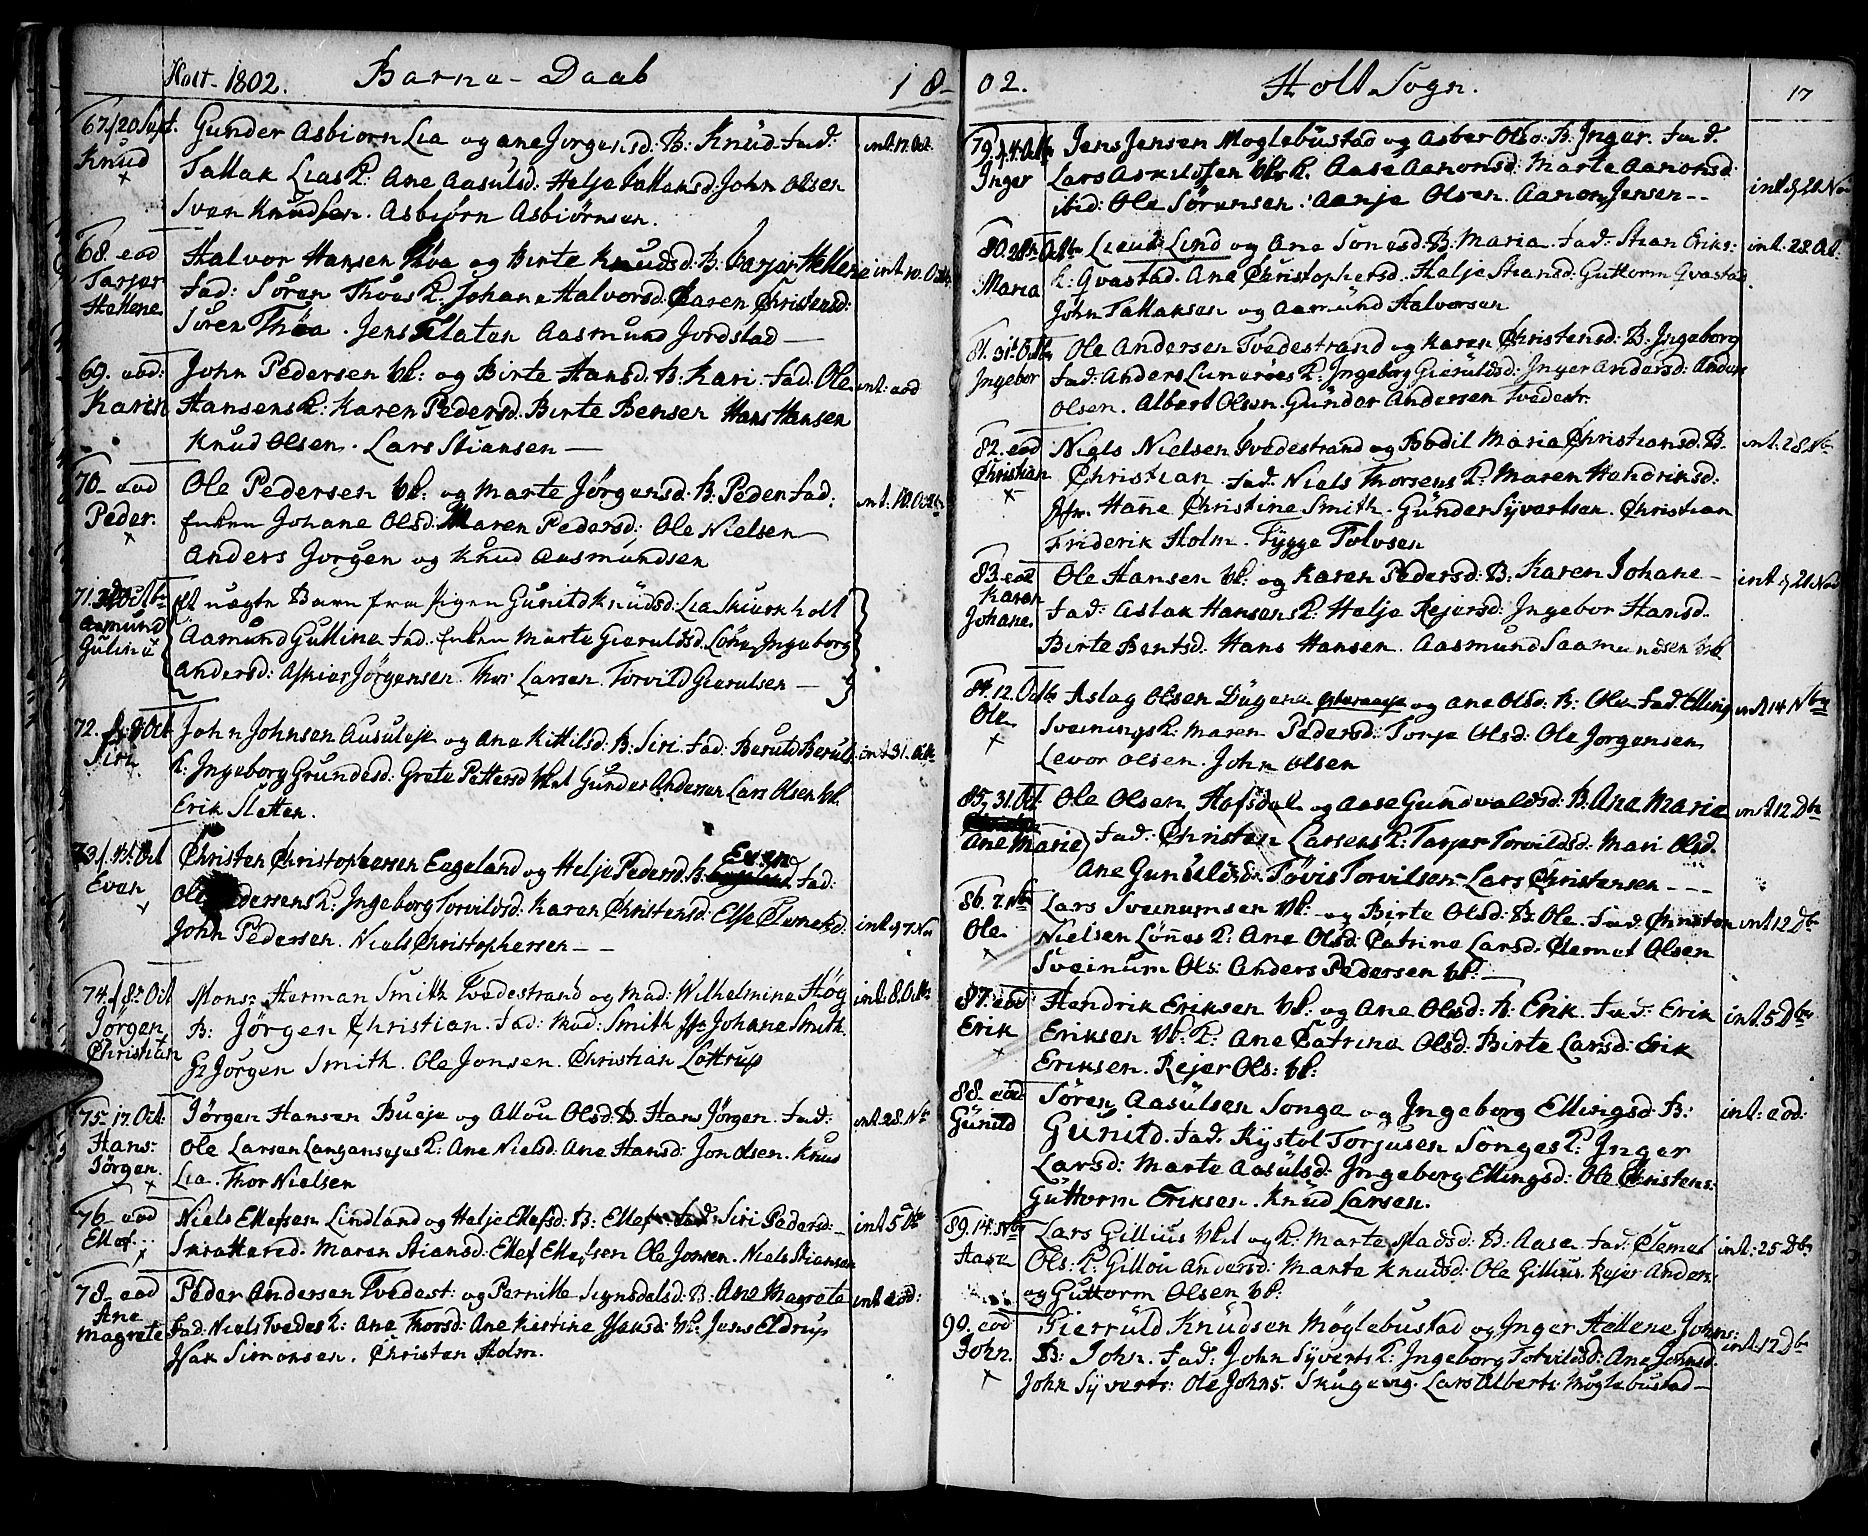 Holt - 1802. Barne - Daab 18
67/20 Sept. Gunder Asbiorn Lia og ane Jorgensd: B: Knud. Fad: int. 17. Oct.
Knud Tallak Lias K: Ane Aasulsd: Helje Tallaksd: John Olsen
Sven Knudsen. Asbiørn Asbiörnsen.
68. eod Halvor Hansen Thva og Birte Knudsd: B: Tarjer Hellene int. 10. Octb
Tarjer Fad: Sören Thöes K: Johane Halvorsd: Karen Christensd:
Hellene Sören Thöa. Jens Flaten Aasmund Jordstad —
69. eod: John Pedersen Vb: og Birte Hansd. B: Kari. Fad: Ole int: eod
Karen Hansens K: Karen Pedersd. Birte Bensen Hans Hansen
Knud Olsen. Lars Stiansen —
70 - eod Ole Pedersen Vb: og Marte Jörgensd: B: Peder Fad: int. 10. Octb
Peder. Enken Johane Olsd: Maren Pedersd: Ole Nielsen
Anders Jorgen og Knud Aasmundsen
71. Octb Et uægte Barn fra Pigen Gunild Knüdsd: Lia Skiærkholt
Aamund Aamund Gulline Fad: Enken Marte Gierulsd. Löne Ingeborg
Guline Andersd: Askier Jörgensen. Thor Larsen. Torvild Gierulsen —
72. Oct John Johnsen Ausuleje og Ane Kittilsd. B: Siri. Fad: Beruld Beruls int 31. Octb
Siri K: Ingeborg Grundesd: Grete Pettersd Vbl Gunder Andersen Lars Olsen Vb.
Erik Sletten.
73/ Oct Christen Christophersen Eegeland og Helje Pedersd: B: Even Fad:
Even Ole Pedersens K: Ingeborg Torvildsd. Karen Christensd: Else Clemetsd. int. 7 Nov
John Pedersen. Niels Christophersen — —
74. 8de Oct Mons: Herman Smith Tvedestrand og Mad: Wilhelmine Höy int: 8. Octb
Jörgen B: Jörgen Christian. Fad: Mad: Smith Jfr Johane Smith.
Christian Hr Jörgen Smith. Ole Jonsen. Christian Lottrup
75. 17. Oct: Jörgen Hansen Bueje og Allou Olsd: B. Hans Jörgen. Fad: int. 28. Nov
Hans- Ole Larsen Langansejes K: Ane Nielsd: Ane Hansd: Jon Olsen. Knud
Jörgen. Lia. Thor Nielsen
76 - eod Niels Ellefsen Lindland og Helje Ellefsd: B: Ellef. Fad: Siri Pedersd: int. 5 Db
Ellef Skrattered. Maren Stiansd: Ellef Ellefsen Ole Jonsen. Niels Stiansen
78 - eod Peder Andersen Tvedest: og Pernille Signsdalsd: B: Ane Magrete int. eod:
Ane Fad: Niels Tvedes K: Ane Thorsd: Ane Kirstine Isaksd: Vb. Jens Eldrup
Magrete Isak Simonsen. Christen Holm.
02. Holt Sogn. 17
79. Octb Jens Jensen Moglebustad og Asber Olsd: B. Inger. Fad:
Inger Lars Askildsen Vb. K. Aase Aanonsd: Marte Aanonsd: int. 21 Nov
ibid: Ole Sörensen. Aanje Olsen. Aanon Jensen - -
80. 28 Octb Lieut: Lind og Ane Tonesd: B: Maria. Fad: Stian Eriks: int. 28. Oct:
Maria K: Qvastad. Ane Christophersd. Helje Stiansd: Guttorm Qvastad.
John Tallaksen og Aamund Halvorsen
81. 31 Octb Ole Andersen Tvedestrand og Karen Christensd: B: Ingeborg
Ingebor Fad: Anders Lunöroes K: Ingeborg Gieruldsd: Inger Andersd: Anders
Olsen. Albert Olsen. Gunder Andersen Tvedestr.
82. eod Niels Nielsen Tvedestrand og Bodil Maria Christiansd: B. int. 28 Nb
Christian Christian. Fad: Niels Thorsens K: Maren Hendriksd:
Jfr. Hane Christine Smith. Gunder Syvertsen. Christian
Friderik Holm. Tygge Tolvsen
83. eod Ole Hansen Vb: og Karen Pedersd: B: Karen Johane — int. 21 Nov
Karen Fad: Aslak Hansens K: Helje Rejersd: Ingebor Hansd.
Johane. Birte Bentsd: Hans Hansen. Aasmund Saamundsen Vb
84. 12. Octb Aslag Olsen Dugene og Ane Olsd: B: Ole Fad. Elling int 14 Nb
Ole Sveinings K: Maren Pedersd: Torje Olsd: Ole Jorgensen
Levor Olsen. John Olsen
85. 31. Oct. Ole Olsen Hofsdal og Aase Gundvalsd: B: Ane Marie int. 12 Db
Ane Marie Fad: Christen Larsens K: Tarjer Torvildsd. Mari Olsd.
Ane Gundildsd. Tövis Torvilsen - Lars Christensen - - -
86. 7. Nb Lars Sveinumsen Vb: og Birte Olsd: B: Ole. Fad: Christen int 12 Db
Ole. Nielsen Lönes K: Ane Olsd: Catrine Larsd: Clemet Olsen
Sveinum Ols: Anders Pedersen Vb: —
87. eod Hendrik Eriksen Vb: og Ane Olsd: B: Erik. Fad: Erik int. 5 Db
Erik Eriksen Vb: K: Ane Catrine Olsd: Birte Larsd: Erik
Eriksen. Rejer Ols: Vb:
88. eod Sören Aasulsen Songe og Ingeborg Ellingsd: B: int: eod:
Gunild Gunild. Fad: Kystol Torjusen Songes K: Inger
Larsd: Marte Aasulsd: Ingeborg Ellingsd: Ole Christens:
Guttorm Eriksen. Knud Larsen.
89. 14. Nb Lars Gillius Vbl og K. Marte Madsd: B: Aase. Fad: Clemet int: 25 Db
Aase Ols: K: Gillou Andersd: Marte Knudsd: Ole Gillius. Rejer Anders:
og Guttorm Olsen Vb:
90. eod Gierruld Knudsen Moglebustad og Inger Hellene Johns: int. 12 Db
John. B: John. Fad: John Syverts K: Ingeborg Torvildsd: Ane Johnsd.
John Syverts: Ole Johns. Skugevig. Lars Alberts: Moglebustad —